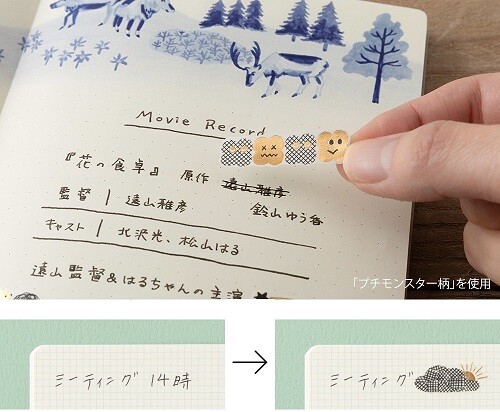 Movie Record
『花の食卓』 原作 遠山雅彦
鈴山ゆう香
監督 | 遠山雅彦
キャスト | 北沢光、松山はる
遠山監督&はるちゃんの主演★
「プチモンスター柄」を使用
ミーティング 14時
ミーティング